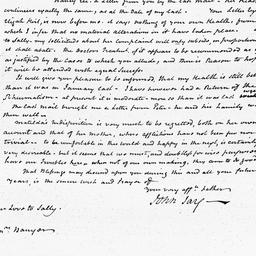 a letter from you by the last mail - her health
continues exactly the same, as at the Date of my last. Your letter by
Elijah Hoit, is now before me. it says nothing of your own Health; from
which I infer that no material alteration in it has taken place.
to Sally, my Solicitude about her complaint will only subside in proportion
it shall abate. The Doctors Practice, if it appears to be recommended as
as justified by the Cases to which you allude; and there is Reason to hope
it will be attended with equal Success.
It will give you pleasure to be informed, that my Health is still better
than it was on January last. I have however had a Return of the
Rheumatism - at present it is moderate - more so than it was last week
The last mail brought me a letter from Peter. he and his family we
then well -
Matilda's Indisposition is very much to be regretted, both on her own
account and that of her mother, whose afflictions have not been few nor
trivial - to be comfortable in this world and happy in the next, is certainly
very desirable. but it seems that we must, and doubtless for wise purposes
have our Troubles here - when not of our own making, they turn to good
That Blessings may descend upon you during this and all your future
Years, is the sincere wish and Prayer of
your very affte. father
John Jay
Love to Sally.
Wm. Banyer